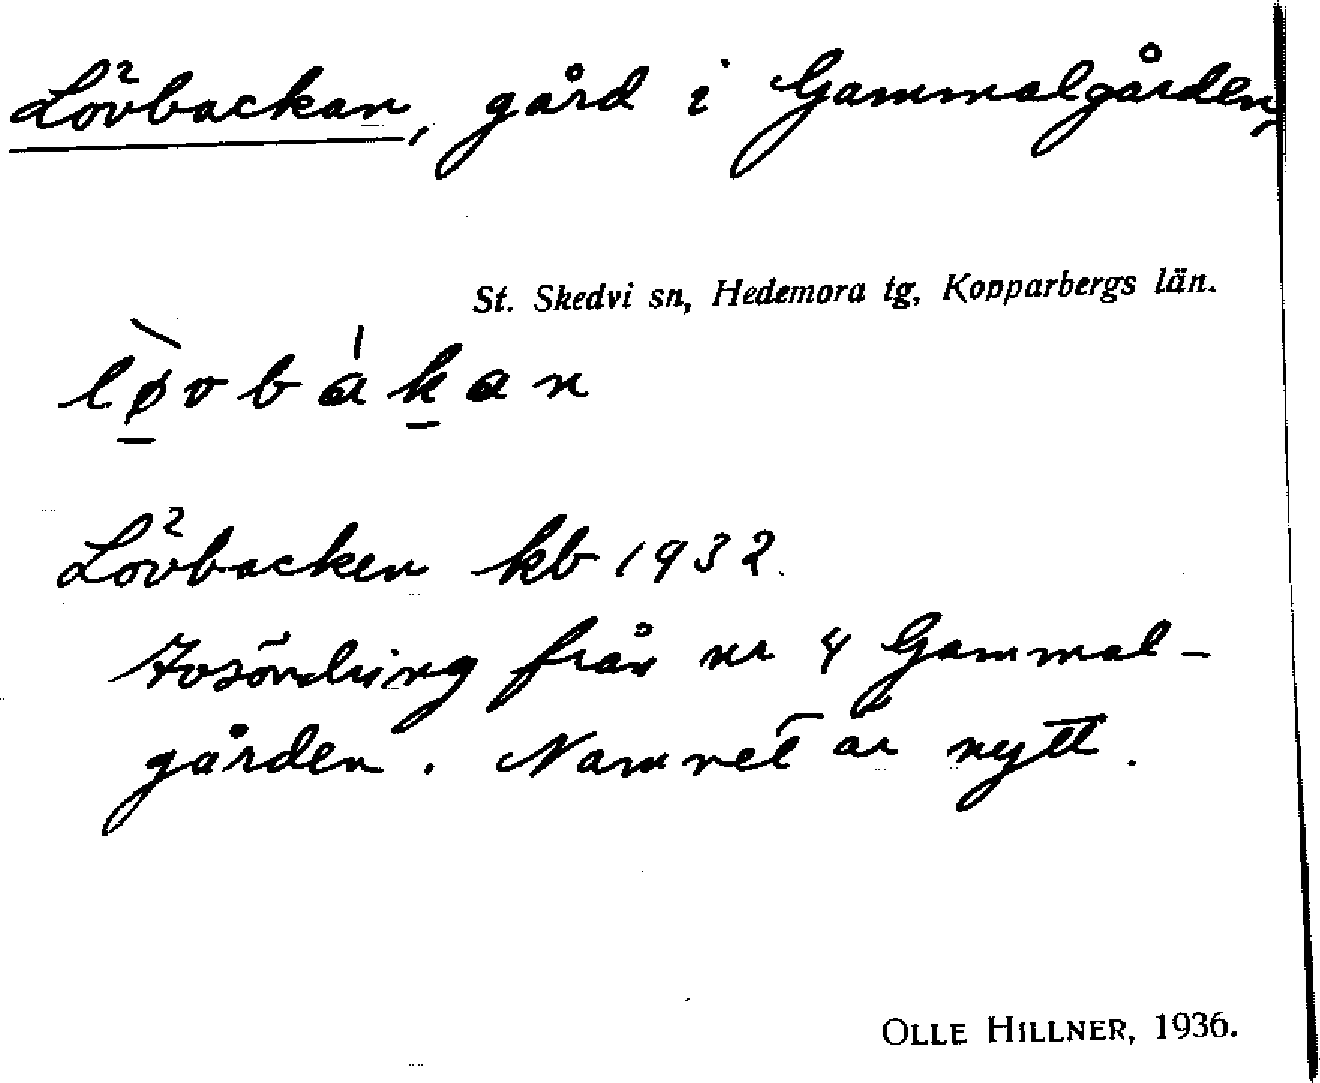 Lövbackan, gård i Gammalgården,
St. Skedvi sn, Hedemora tg, Kopparbergs län.
lø̠̀vbák̠an
Lövbacken kb 1932.
Avsöndring från nr 4 Gammal-
gården. Namnet är nytt.
OLLE HILLNER, 1936.